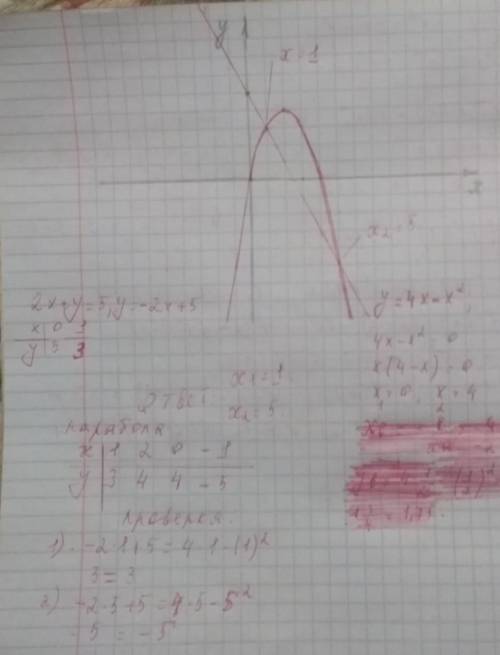 y
x = 1
x
x₂ = 5
2x+y=5, y=-2x+5
x | 0 | 1
y | 5 | 3
y = 4x - x²,
4x-x² = 0
x(4-x) = 0
x=0, x=4
1 2
x₁=1
Ответ
x₂=5.
парабола
x | 1 2 0 -1
y | 3 4 4 -5
проверка.
1). -2·1+5 = 4·1-(1)²
3 = 3
2) -2·5+5 = 4·5-5²
-5 = -5